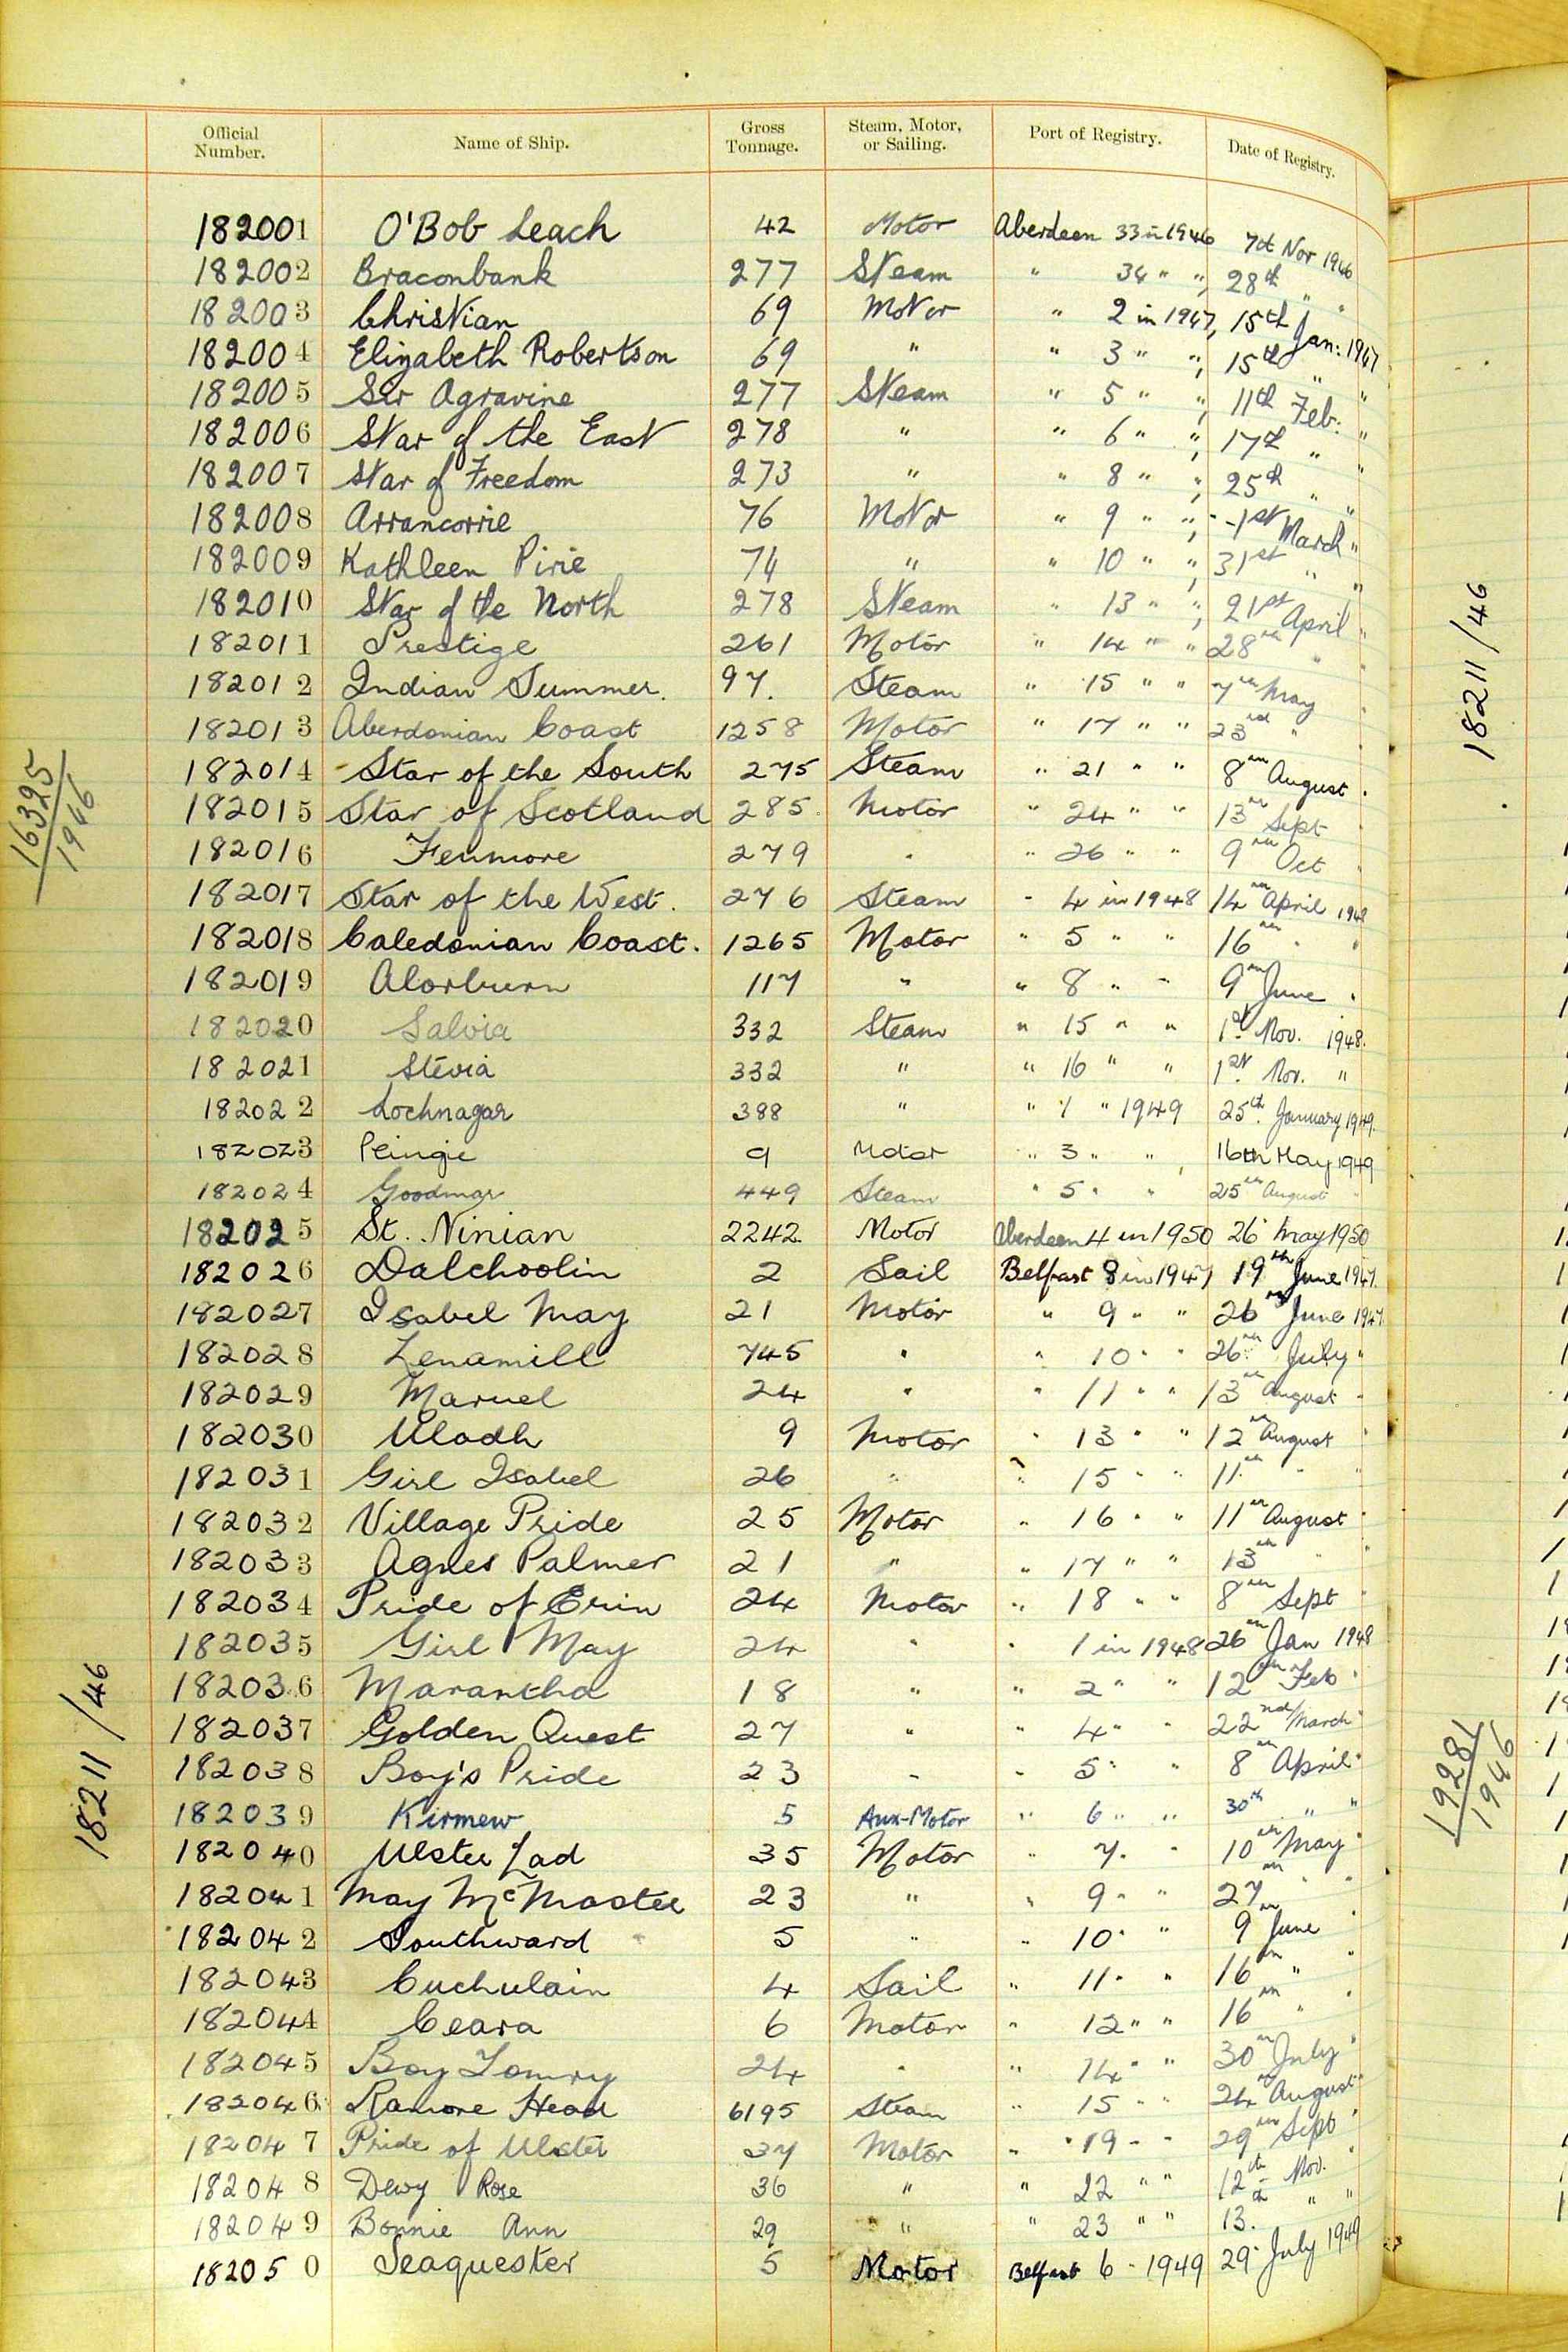 Official Number. Name of Ship. Gross Tonnage. Steam, Motor, or Sailing. Port of Registry. Date of Registry.
182001 O'Bob Leach 42 Motor Aberdeen 33 in 1946 7th Nov 1946
182002 Braconbank 277 Steam " 34 " " 28th " "
182003 Christian 69 Motor " 2 in 1947, 15th Jan: 1947
182004 Elizabeth Robertson 69 " " 3 " " 15th " "
182005 Sir Agravine 277 Steam " 5 " " 11th Feb: "
182006 Star of the East 278 " " 6 " " 17th " "
182007 Star of Freedom 273 " " 8 " " 25th " "
182008 Arrancorrie 76 Motor " 9 " " 1st March "
182009 Kathleen Pirie 74 " " 10 " " 31st " "
182010 Star of the North 278 Steam " 13 " " 21st April "
182011 Prestige 261 Motor " 14 " " 28th " "
182012 Indian Summer. 97. Steam " 15 " " 7th May "
182013 Aberdonian Coast 1258 Motor " 17 " " 23rd " "
182014 Star of the South 275 Steam " 21 " " 8th August "
182015 Star of Scotland 285 Motor " 24 " " 13th Sept "
182016 Fenmore 279 " " 26 " " 9th Oct "
182017 Star of the West. 276 Steam " 4 in 1948 14th April 1948
182018 Caledonian Coast. 1265 Motor " 5 " " 16th " "
182019 Alorburn 117 " " 8 " " 9th June "
182020 Salvia 332 Steam " 15 " " 1st Nov. 1948.
182021 Stevia 332 " " 16 " " 1st Nov. "
182022 Lochnagar 388 " " 1 " 1949 25th January 1949.
182023 Peingie 9 Motor " 3 " " 16th May 1949
182024 Goodmar 449 Steam " 5 " " 25th August "
182025 St. Ninian 2242 Motor Aberdeen 4 in 1950 26 May 1950
182026 Dalchoolin 2 Sail Belfast 8 in 1947 19th June 1947.
182027 Isabel May 21 Motor " 9 " " 26th June 1947.
182028 Lenamill 745 " " 10 " " 26th July "
182029 Maruel 24 " " 11 " " 13th August "
182030 Uladh 9 Motor " 13 " " 12th August "
182031 Girl Isabel 26 " " 15 " " 11th " "
182032 Village Pride 25 Motor " 16 " " 11th August "
182033 Agnes Palmer 21 " " 17 " " 13th " "
182034 Pride of Erin 24 Motor " 18 " " 8th Sept "
182035 Girl May 24 " " 1 in 1948 26th Jan 1948
182036 Marantha 18 " " 2 " " 12th Feb "
182037 Golden Quest 27 " " 4 " " 22nd March "
182038 Boy's Pride 23 " " 5 " " 8th April "
182039 Kirmew 5 Aux-Motor " 6 " " 30th " "
182040 Ulster Lad 35 Motor " 7 " " 10th May "
182041 May McMaster 23 " " 9 " " 27th " "
182042 Southward 5 " " 10 " " 9th June "
182043 Cuchulain 4 Sail " 11 " " 16th " "
182044 Ceara 6 Motor " 12 " " 16th " "
182045 Boy 24 " " 14 " " 30th July "
182046 Ramore Head 6195 Steam " 15 " " 24th August "
182047 Pride of Ulster 37 Motor " 19 " " 29th Sept "
182048 Dewy Rose 36 " " 22 " " 12th Nov. "
182049 Bonnie Ann 29 " " 23 " " 13th " "
182050 Seaquester 5 Motor Belfast 6 " 1949 29 July 1949
16325/1946
18211/46
18211/46
19281/1946